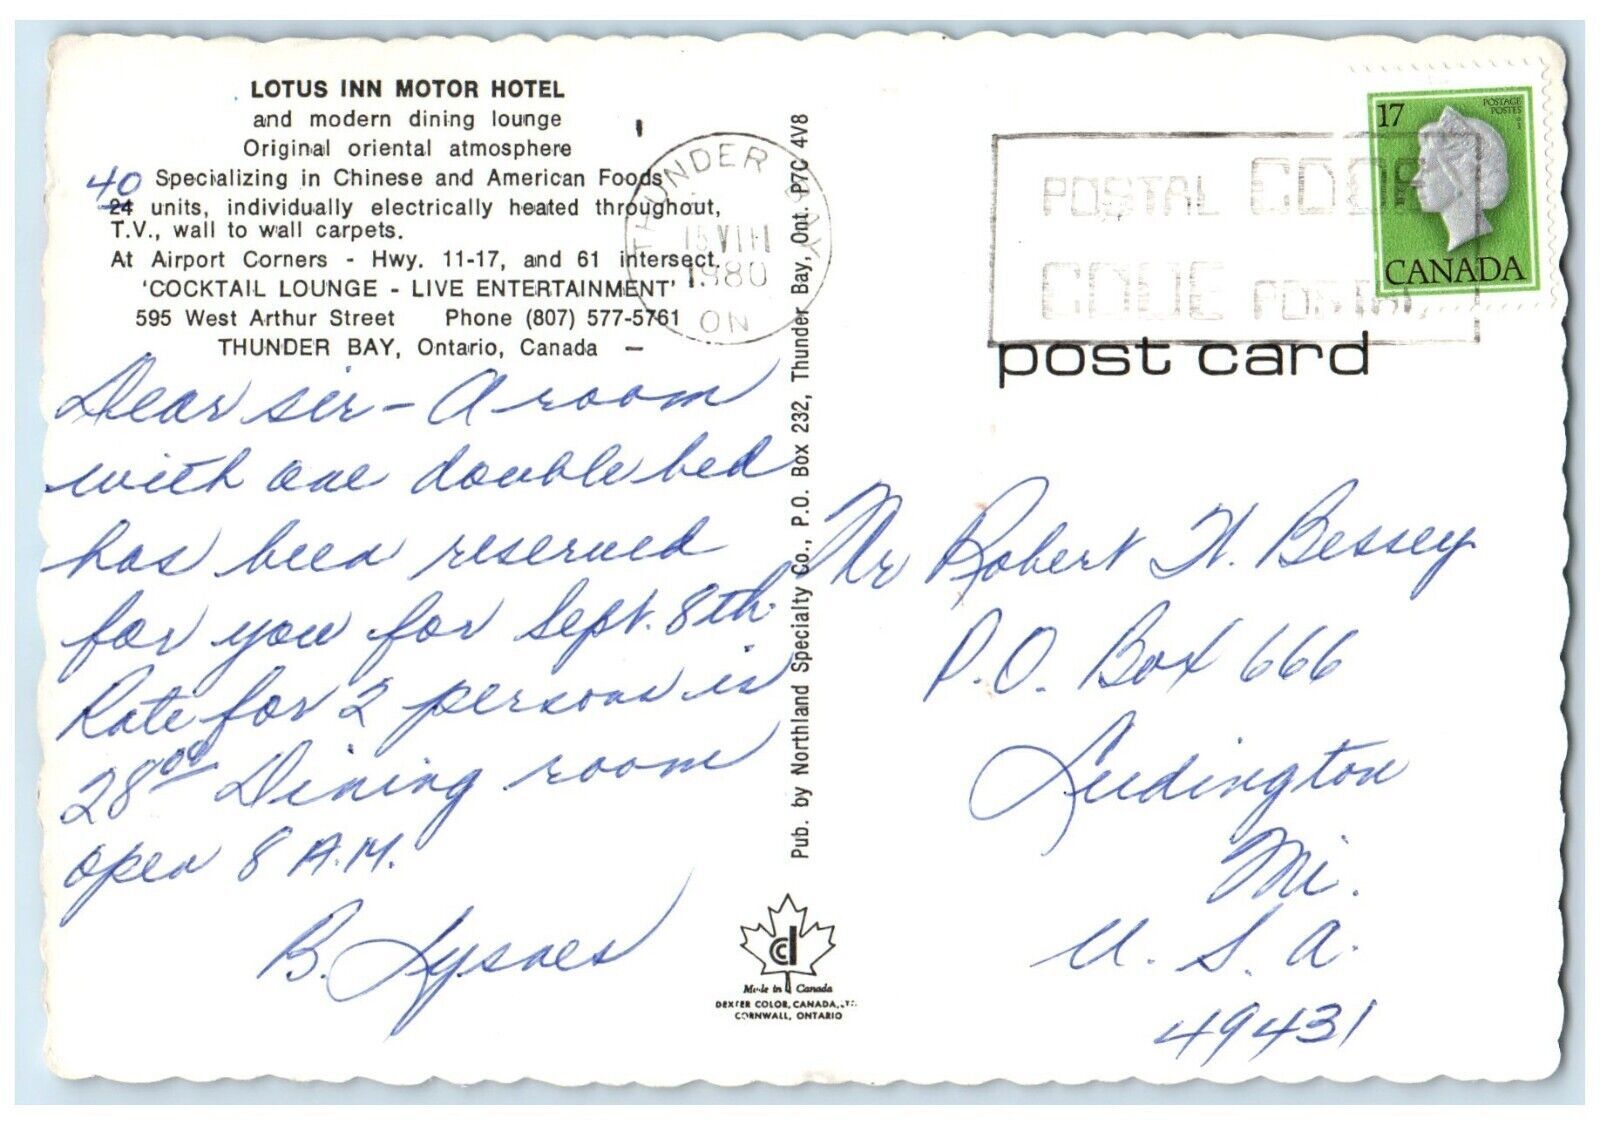 LOTUS INN MOTOR HOTEL
and modern dining lounge
Original oriental atmosphere
Specializing in Chinese and American Foods
40
24 units, individually electrically heated throughout,
T.V., wall to wall carpets.
At Airport Corners - Hwy. 11-17, and 61 intersect.
'COCKTAIL LOUNGE - LIVE ENTERTAINMENT'
595 West Arthur Street Phone (807) 577-5761
THUNDER BAY, Ontario, Canada
Dear sir - A room
with one double bed
has been reserved
for you for Sept. 8th.
Rate for 2 persons is
28.00 Dining room
open 8 A.M.
B. Lysnes
THUNDER BAY
15 VIII
1980
ON
Pub. by Northland Specialty Co., P.O. Box 232, Thunder Bay, Ont. P7C 4V8
Made in Canada
DEXTER COLOR, CANADA, LTD.
CORNWALL, ONTARIO
POSTAL CODE
CODE POSTAL
17
POSTAGE
POSTES
CANADA
post card
Mr Robert H. Bessey
P.O. Box 666
Ludington
Mi.
U.S.A.
49431